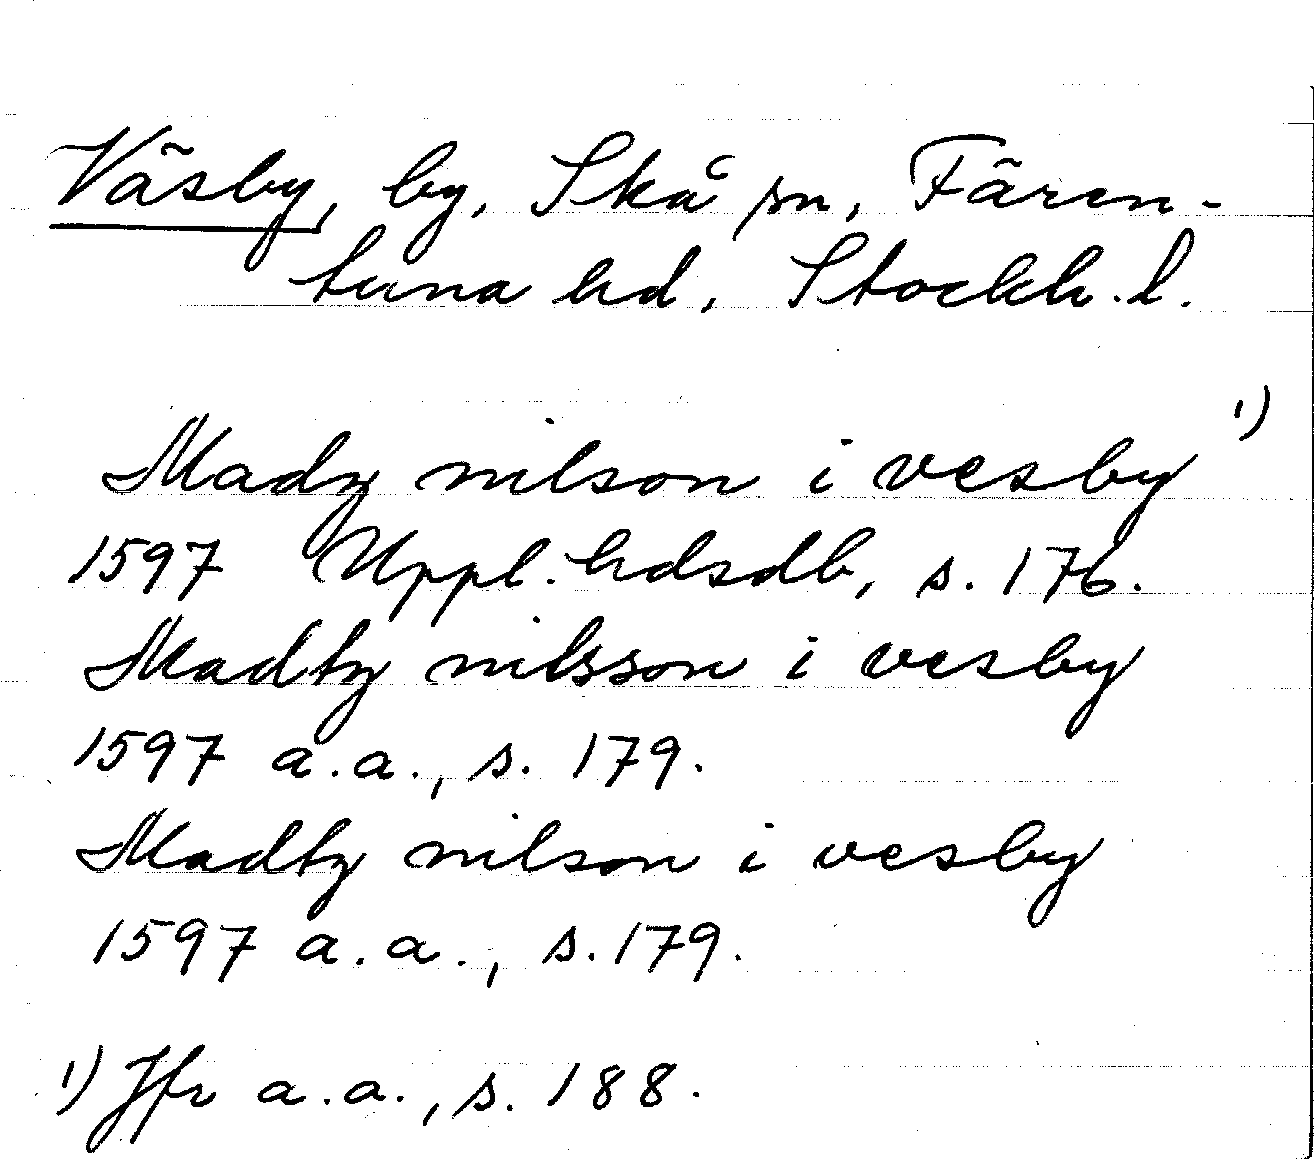 Väsby, by, Skå sn, Fären-
tuna hd, Stockh. l.
Madz nilson i vesby 1)
1597 Uppl. hdsdb, s. 176.
Madtz nilsson i vesby
1597 a.a., s. 179.
Madtz nilson i vesby
1597 a.a., s. 179.
1) Jfr a.a., s. 188.